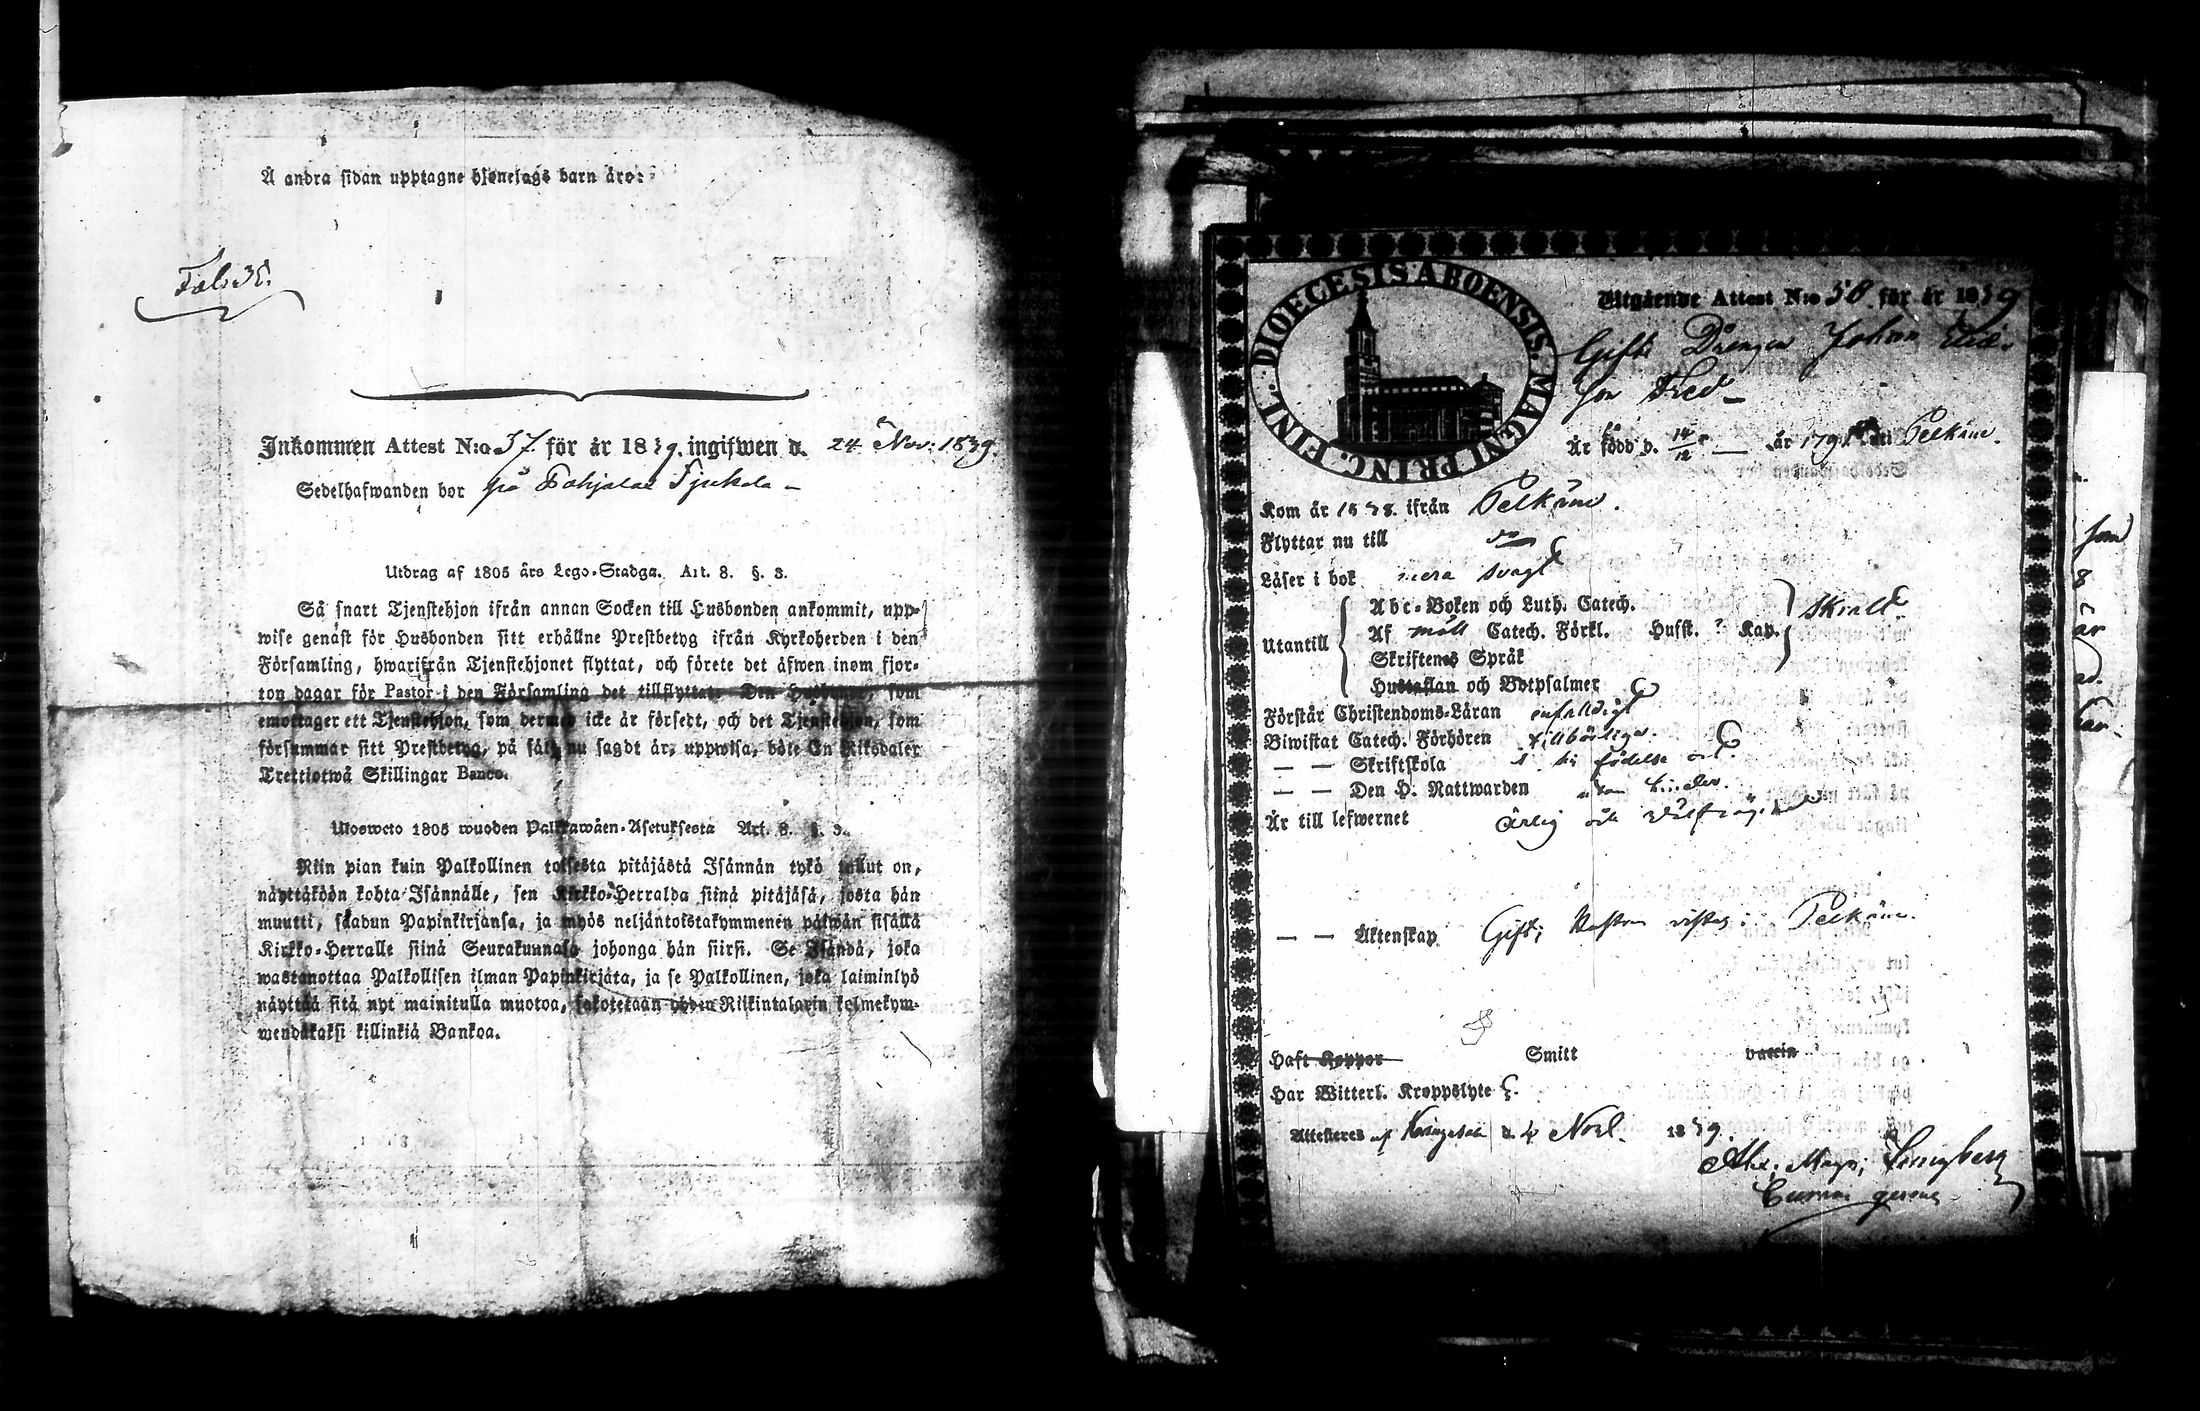 Å andra sidan upptagne hjonelags barn äro:
Fol: 38.
Inkommen Attest N:o 37. för år 1839. ingifwen d. 24 Nov: 1839.
Sedelhafwanden bor på Pohjalax
Utdrag af 1805 års Lego-Stadga. Art. 8. §. 3.
Så snart Tjenstehjon ifrån annan Socken till Husbonden ankommit, upp-
wise genast för Husbonden sitt erhållne Prestbetyg ifrån Kyrkoherden i den
Församling, hwarifrån Tjenstehjonet flyttat, och förete det äfwen inom fjor-
ton dagar för Pastor i den Församling det tillflyttat. Den Husbonde, som
emottager ett Tjenstehjon, som dermed icke är försedt, och det Tjenstehjon, som
försummar sitt Prestbetyg, på sätt nu sagdt är, uppwisa, böte En Riksdaler
Trettiotwå Skillingar Banco.
Ulosweto 1805 wuoden Palkkawäen-Asetuksesta Art. 8. §. 3.
Niin pian kuin Palkollinen toisesta pitäjästä Isännän tykö tullut on,
näyttäköön kohta Isännälle, sen Kirkko-Herralda siinä pitäjäsä, josta hän
muutti, saadun Papinkirjansa, ja myös neljäntoistakymmenen päiwän sisällä
Kirkko-Herralle siinä Seurakunnasa johonga hän siirsi. Se Isändä, joka
wastanottaa Palkollisen ilman Papinkirjata, ja se Palkollinen, joka laiminlyö
näyttää sitä nyt mainitulla muotoa, sakotetaan yhden Riikintalarin kolmekym-
mendäkaksi killinkiä Bankoa.
DIOECESIS ABOENSIS. MAGNI PRINC. FINL.
Utgående Attest N:o 58 för år 1839
Gifte Drengen Johan
son Fred
Är född d. 14/12 år 179 uti Pelkäne.
Kom år 1838. ifrån Pelkäne.
Flyttar nu till do
Läser i bok mera svagt
Utantill
Abc-Boken och Luth. Catech.
Af Catech. Förkl. Husst. ? Kap.
Skriftenes Språk
Hustaflan och Botpsalmer
skralt
Förstår Christendoms-Läran enfaldigt
Biwistat Catech. Förhören tillbörligen.
— — Skriftskola i sin födelse ort.
— — Den H. Nattwarden utan hinder.
Är till lefwernet Ärlig och välfräjdad
— — Äktenskap Gift; Hustrun vistas i Pelkäne.
Haft Koppor Smitt vaccin
Har Witterl. Kroppslyte
Attesteras af Kangasala d. 4 Novl. 1839.